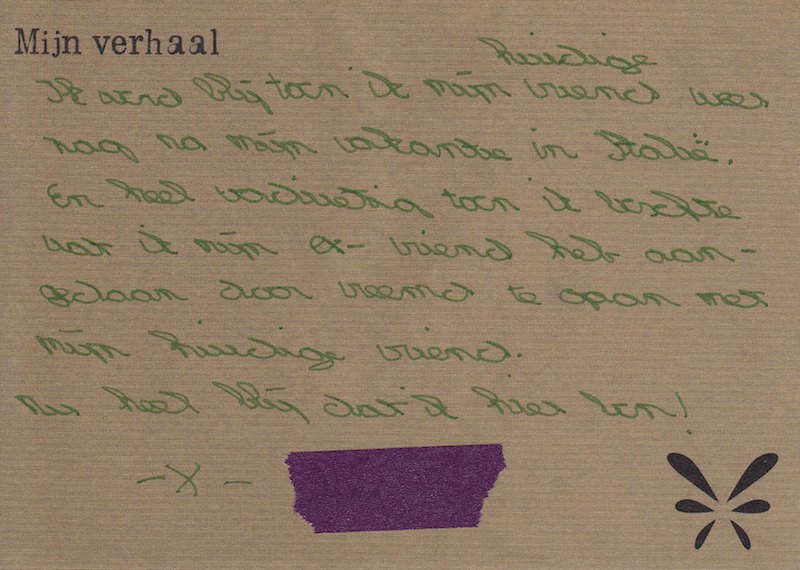 Mijn verhaal
huidige
Ik werd blij toen ik mijn vriend weer
zag na mijn vakantie in Italië.
En heel verdrietig toen ik besefte
wat ik mijn ex-vriend heb aan-
gedaan door vreemd te gaan met
mijn huidige vriend.
Nu heel blij dat ik hier ben!
-X-